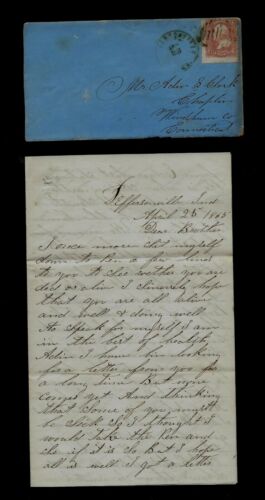 Mr. Adin S Clark
Chaplin
Windham Co
Connecticut
Jeffersonville Ind
April 25 1865
Dear Brother
I once more set myself
down to Pen a few lines
to you to See wether you are
ded or alive I Sincerely hope
that you are all alive
and well & doing well
As to Speak for myself I am
in the best of health
Adin I have bin looking
for a letter from you for
a long time But none
Comes yet And thinking
that Some of you might
be Sick So I thought I
would take the Pen and
See if it is So But I hope
all is well I got a letter